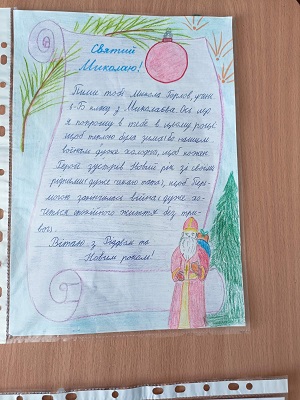 Святий
Миколаю!
Пише тобі Микола Горлов, учень
-Б класу з Миколаєва. Ось що
я попрошу в тебе в цьому році:
щоб теплою була зима, бо нашим
воїнам дуже холодно, щоб кожен
Герой зустрів Новий рік за своїми
рідними (дуже чекаю тата), щоб Пере-
могою закінчилася війна, дуже хо-
четься спокійного життя без три-
вог.
Вітаю з Різдвом та
Новим роком!